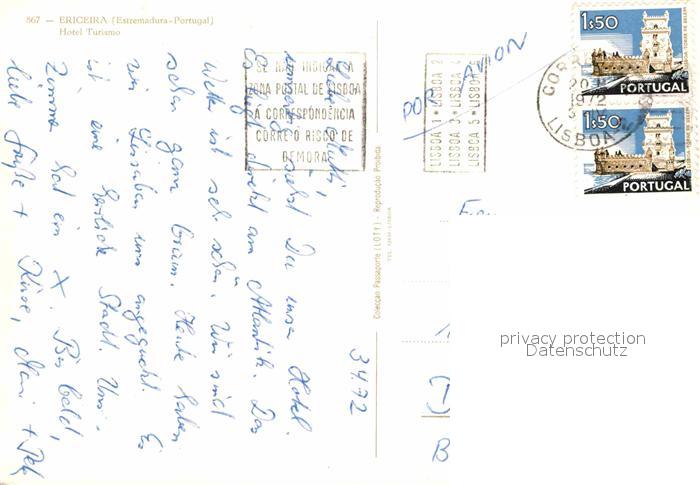 867 — ERICEIRA (Estremadura-Portugal)
Hotel Turismo
SE NÃO INDICAR A
ZONA POSTAL DE LISBOA
A CORRESPONDÊNCIA
CORRE O RISCO DE
DEMORA
LISBOA 1 • LISBOA 2
LISBOA 3 • LISBOA 4
LISBOA 5 • LISBOA 6
POR AVION
1$50
PORTUGAL
1$50
PORTUGAL
CORREIOS
1972
LISBOA
3.4.72
siehst Du unser Hotel.
Es liegt direkt am Atlantik. Das
Wetter ist sehr schön. Wir sind
schon ganz braun. Heute haben
wir Lissabon uns angeguckt. Es
ist eine herrliche Stadt. Unser
Zimmer hat ein X. Bis bald,
liebe Grüße + Küsse,
Colecção Passaporte (LOTY) - Reprodução Proibida
B
privacy protection
Datenschutz